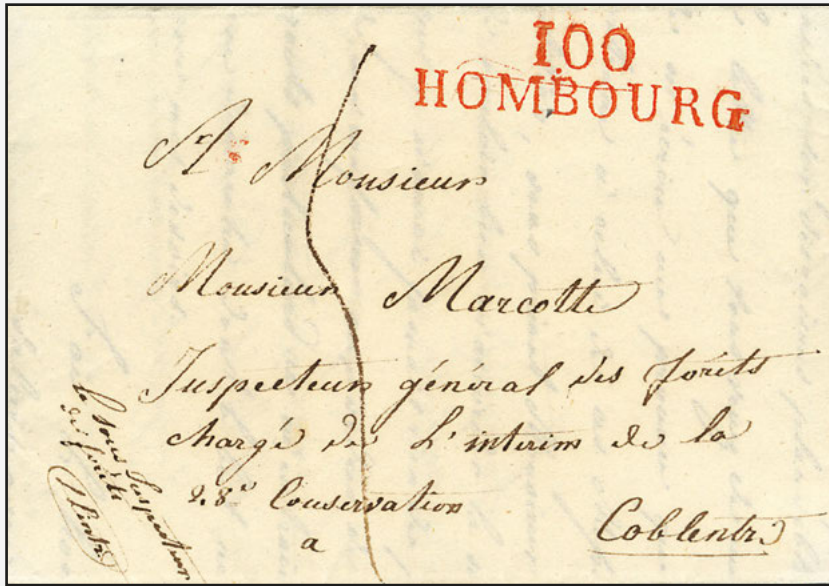 100
HOMBOURG
A Monsieur
Monsieur Marcotte
Inspecteur général des forêts
chargé de L'interim de la
28e Conservation
a Coblentz
le sous Inspecteur
des forêts